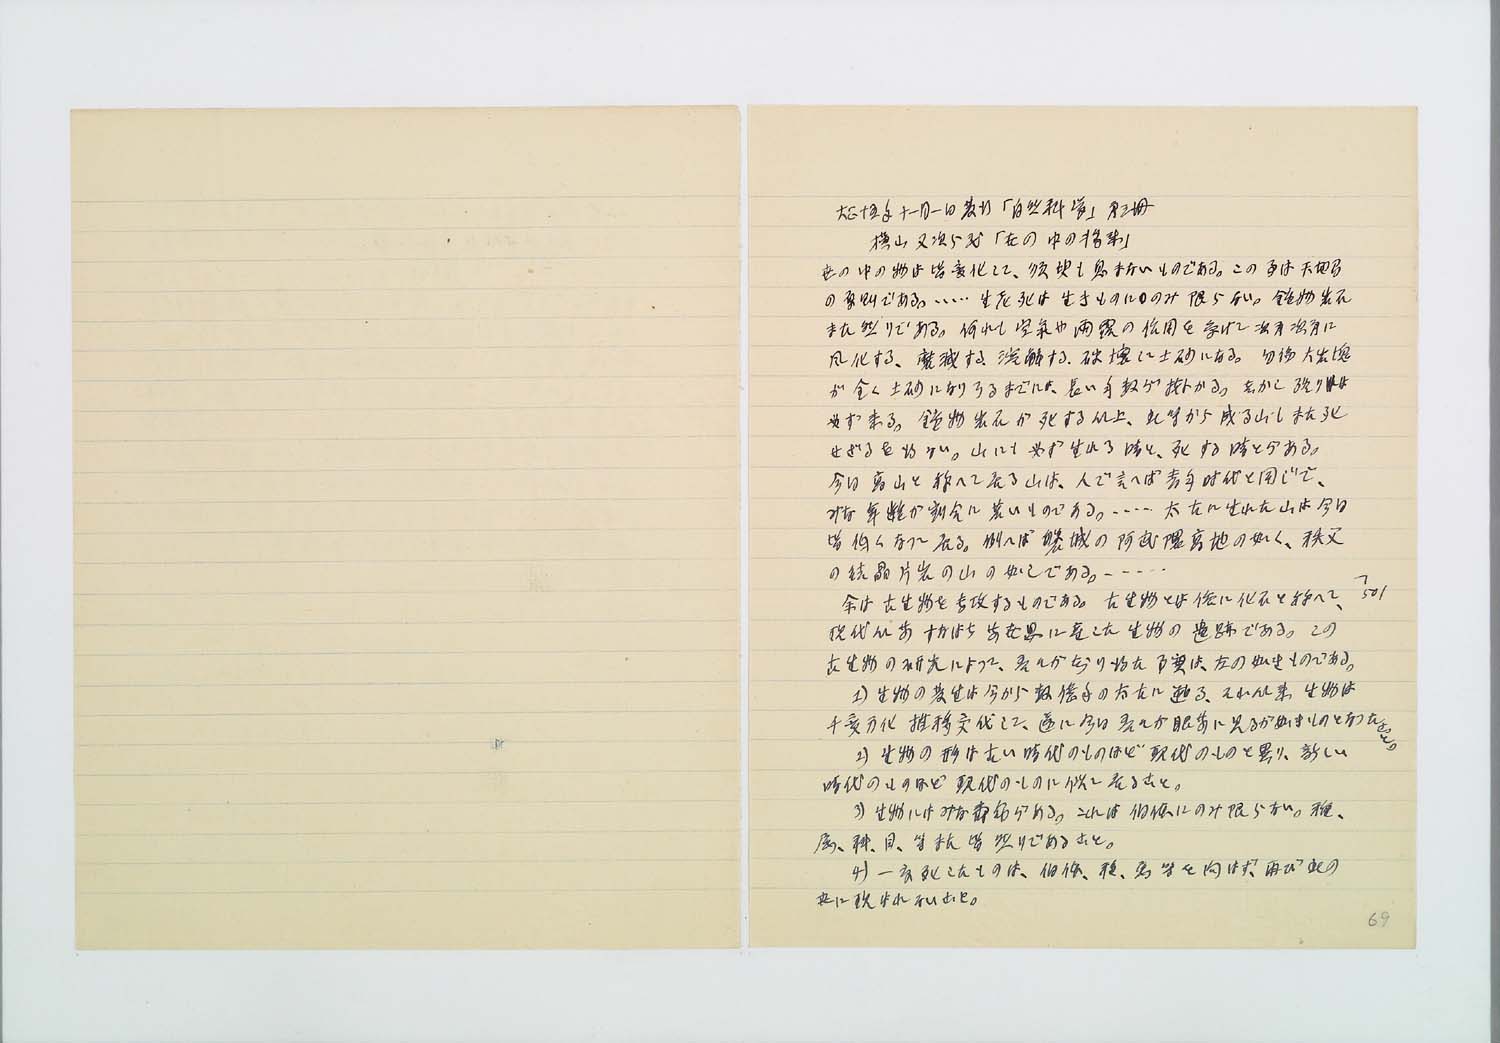 大正十五年十一月一日発行「自然科学」第三冊
横山又次郎「世の中の将来」
世の中の物は皆変化して、須臾も息まないものである。この事は天地間
の原則である。‥‥‥生死は生きものにのみ限らない。鉱物岩石
また然りである。何れも空気や雨露の作用を受けて次第次第に
風化する、磨滅する、溶解する、破壊して土砂になる。勿論大岩塊
が全く土砂になりうるまでには、長い年数が掛かる。然かし終りは
必ず来る。鉱物岩石が死する以上、此等から成る山もまた死
せざるを得ない。山にも必ず生れる時と、死する時とがある。
今日高山と称へて居る山は、人で言へば青年時代と同じで、
みな年齢が割合に若いものである。‥‥‥太古に生れた山は今日
皆低くなつて居る。例へば磐城の阿武隈高地の如く、秩父
の結晶片岩の山の如しである。‥‥‥
余は古生物を専攻するものである。古生物とは俗に化石と称へて、
501
現代以前すなはち前世界に産した生物の遺跡である。この
古生物の研究によつて、吾人が知り得た事実は、左の如きものである。
1) 生物の発生は今から数億年の太古に遡る、それ以来生物は
千変万化推移交代して、遂に今日吾人が眼前に見るが如きものとなつたこと。
2) 生物の形は古い時代のものほど現代のものと異り、新しい
時代のものほど現代のものに似て居ること。
3) 生物にはみな寿命がある。これは個体にのみ限らない。種、
属、科、目、等また皆然りであること。
4) 一度死したものは、個体、種、属等を問はず、再び此の
世に現はれないこと。
69